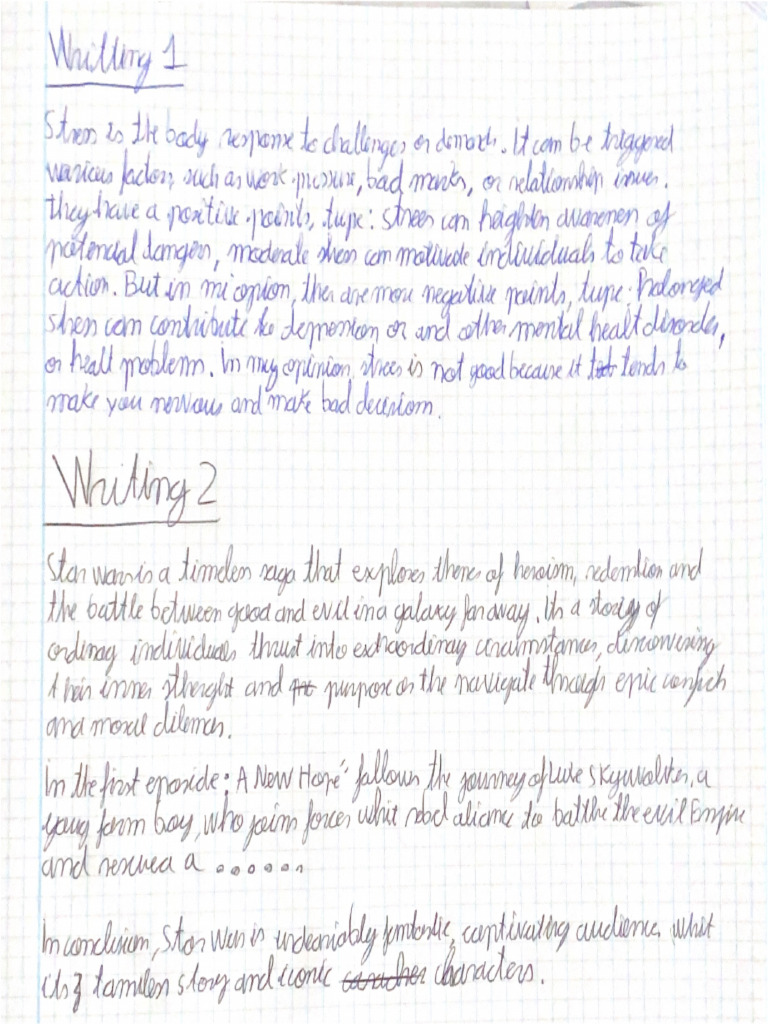 Whitting 1
Stress is the body response to challenges or demands. It can be triggered
warious factors, such as work pressure, bad marks, or relationship issues.
they have a positive points, type: strees can heighten awarenen of
potencial dangers, moderate stress can motivade individuals to take
action. But in mi opnion, ther are more negative points, type: Prolonged
stress can contribute to depression or and other mental healt disorder,
or healt problems. In my opinion, strees is not good because it tends to
make you nervous and make bad decisions.
Whiting 2
Star wars is a timeless saga that explores themes of heroism, redemtion and
the battle between good and evil in a galaxy far away. It's a story of
ordinary individuals thrust into extraordinary circumstances, discovering
their inner strenght and purpose as the navigate through epic conflich
and moral dilemas.
In the first eposide: A New Hope" follows the journey of Luke skywalker, a
young farm boy, who joins forces whit rebel aliance to batthe the evil Empire
and rescued a ......
In conclusion, Star Wars is undeaniably fantastic, captivating audience whit
its tamiless story and iconic characters.